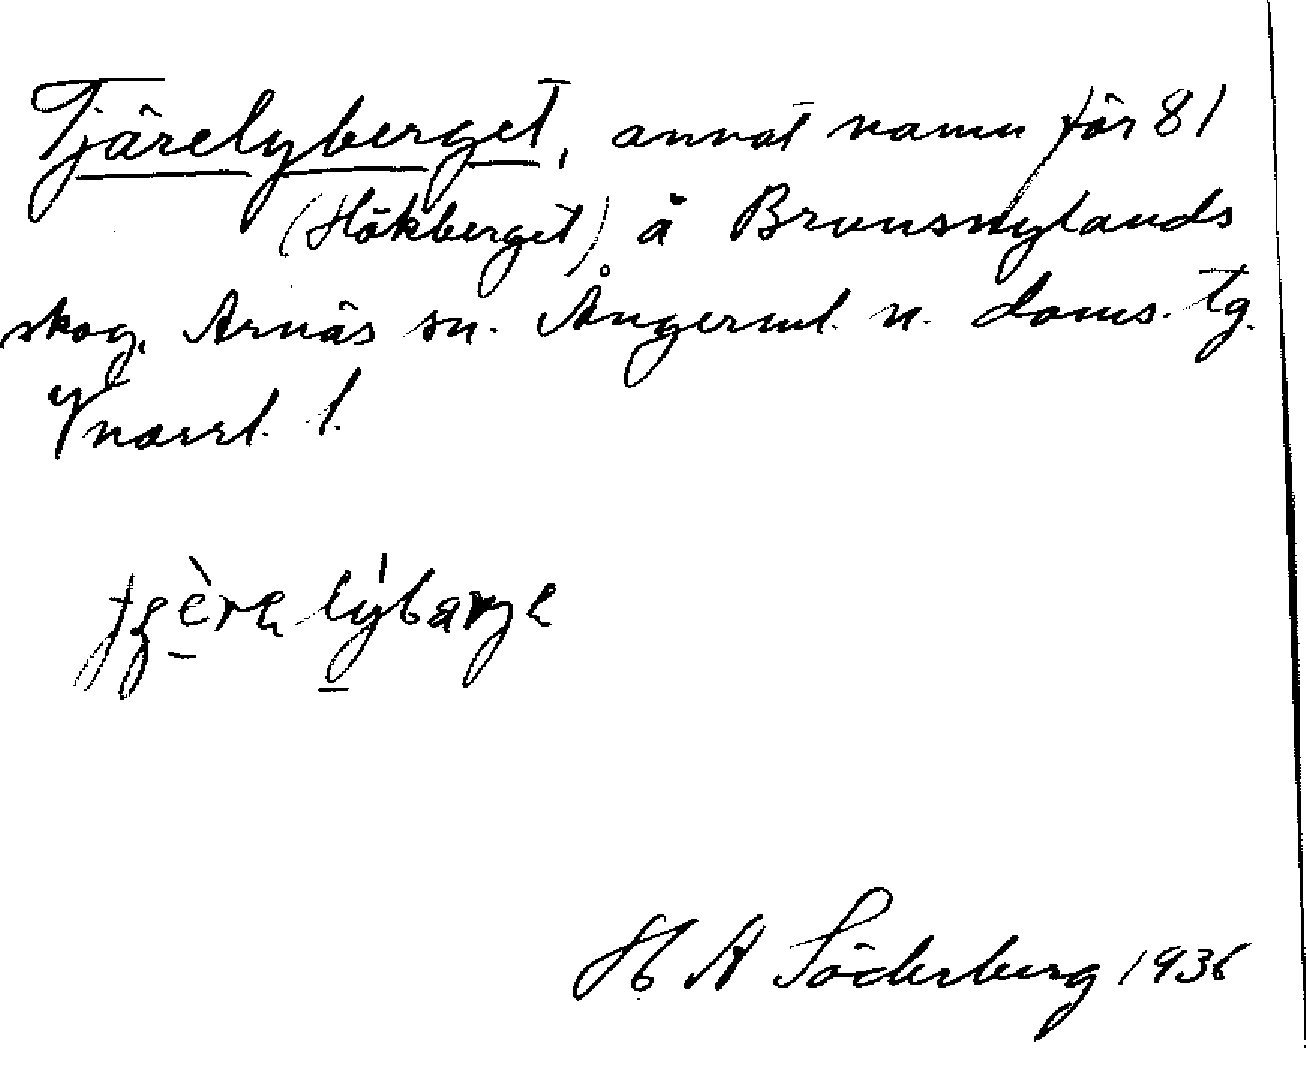 Tjärelyberget, annat namn för 81
(Hökberget) å Brunsnylands
skog, Arnäs sn. Ångerml. n. doms. tg.
Y norrl. l.
H A Söderberg 1936